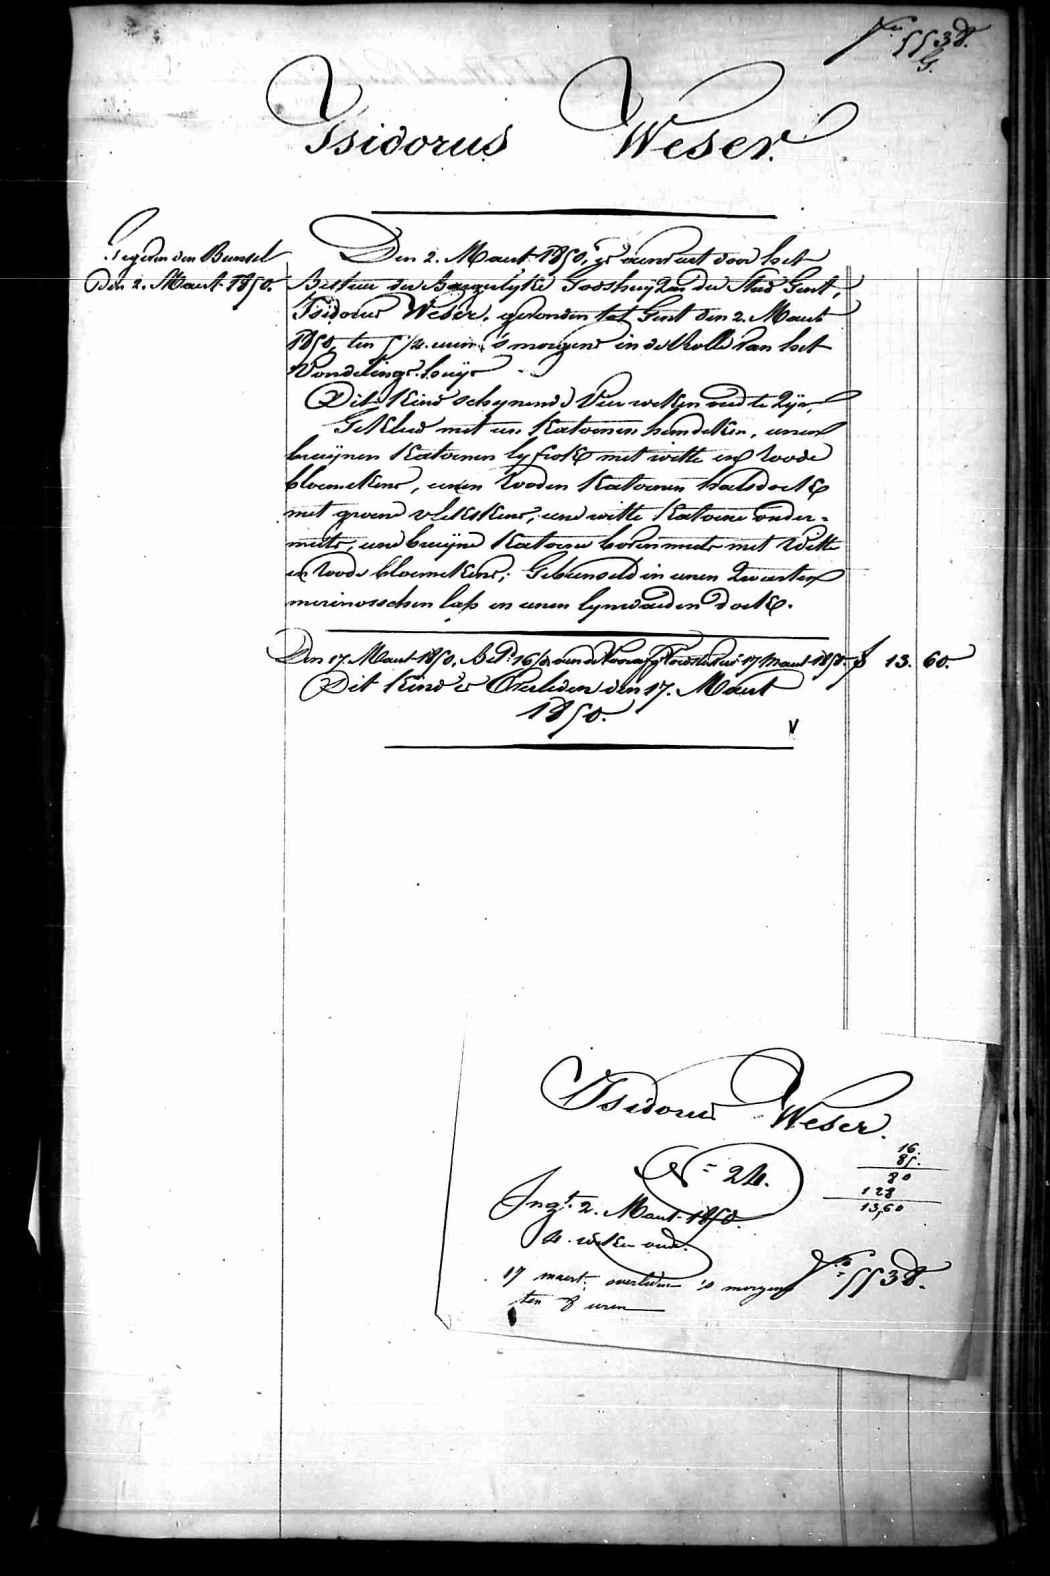 Fo. 5538.
G.
Ysidorus Weser.
Gegeven den Bunsel
Den 2. Maart 1850.
Den 2. Maart 1850, is aenveert door het
Bestuer der Burgerlyke Godshuyzen der Stad Gent,
Ysidorus Weser, gevonden tot Gent den 2. Maart
1850, ten 5 1/4 uren 's morgens in de Rolle van het
Vondelinge-huys
Dit Kind schynende Vier weken oud te zyn,
Gekleed met een Katoenen hemdeken, eenen
bruynen Katoenen lyfrok met witte en roode
bloemekens, eenen rooden Katoenen halsdoek
met groene vlekskens, eene witte Katoene onder-
mute, eene bruyne Katoene bovenmute met Witte
en roode bloemekens; Gebunseld in eenen Zwarten
merinosschen lap en eenen lynwaeden doek.
Den 17 Maart 1850, Bet. 16 17 Maart 1850. f 13. 60.
Dit Kind is Overleden den 17. Maart
1850.
V
Ysidorus Weser.
16.
85.
80
128
13,60
No 24.
Ingt. 2. Maart 1850.
4. weken oud.
17 maert overleden 's morgens
ten 8 uren
Fo 5538.